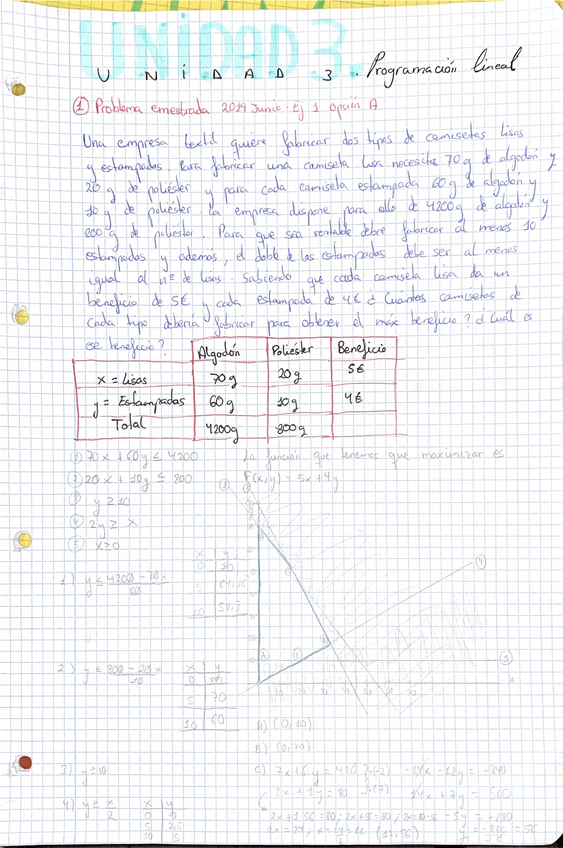 UNIDAD 3.
UNIDAD 3. Programación lineal
① Problema emestrada 2019 Junio. Ej 1 opción A
Una empresa textil quiere fabricar dos tipos de camisetas lisas
y estampadas. Para fabricar una camiseta lisa necesita 70 g de algodón y
20 g de poliéster y para cada camiseta estampada 60 g de algodón y
10 g de poliéster. La empresa dispone para ello de 4200 g de algodón y
800 g de poliester. Para que sea rentable debre fabricar al menos 10
estampadas y además, el doble de las estampadas debe ser al menos
igual al nº de lisas. Sabiendo que cada camiseta lisa da un
beneficio de 5€ y cada estampada de 4€ ¿Cuantas camisetas de
cada tipo debería fabricar para obtener el máx beneficio? ¿Cuál es
ese beneficio?
Algodón Poliéster Beneficio
x = Lisas 70g 20g 5€
y = Estampadas 60g 10g 4€
Total 4200g 800g
① 70x + 60y ≤ 4200 La función que tenemos que maximizar es
② 20x + 10y ≤ 800 F(x,y) = 5x + 4y
③ y ≥ 10
④ 2y ≥ x
⑤ x ≥ 0
1) y ≤ 4200 - 70x / 60
x y
0 70
5
10 58,3
2) y ≤ 800 - 20x / 10
x y
0 80
5 70
10 60
A) (0,10)
B) (0,70)
3) y ≥ 10
C) 7x + 6y = 420 }·(-2) -14x - 12y = -840
2x + 1y = 80 }·(7) 14x + 7y = 560
4) y ≥ x / 2
x y
0 0
5 2,5
10 5
2x + 56 = 80
-5y = -280
2x = 24; x = 12 (12,56)
y = -280 / -5 = 56